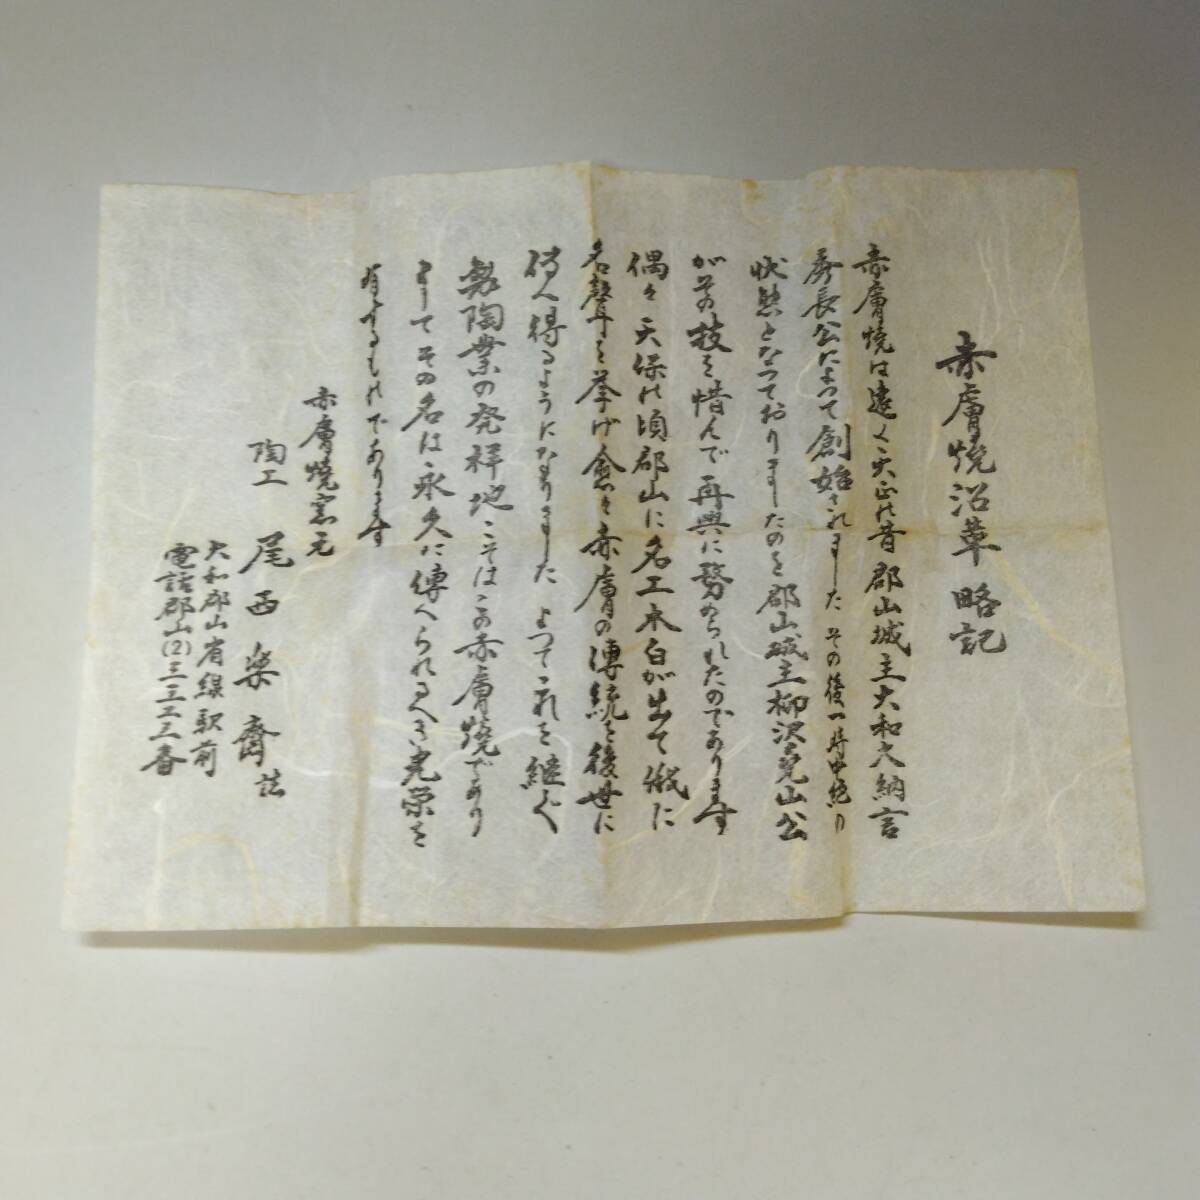 赤膚焼沿革略記
赤膚焼は遠く天正の昔郡山城主大和大納言
秀長公によつて創始されました その後一時中絶の
状態となつておりましたのを郡山城主柳沢尭山公
がその技を惜んで再興に努められたのであります
偶々天保の頃郡山に名工木白が出て俄に
名聲を挙げ愈々赤膚の傳統を後世に
傳へ得るようになりました よつてこれを継ぐ
製陶業の発祥地こそはこの赤膚焼であり
そしてその名は永久に傳へられるべき光栄を
有するものであります
赤膚焼窯元
陶工 尾西楽斎 誌
大和郡山省線駅前
電話郡山(2)三三三三番